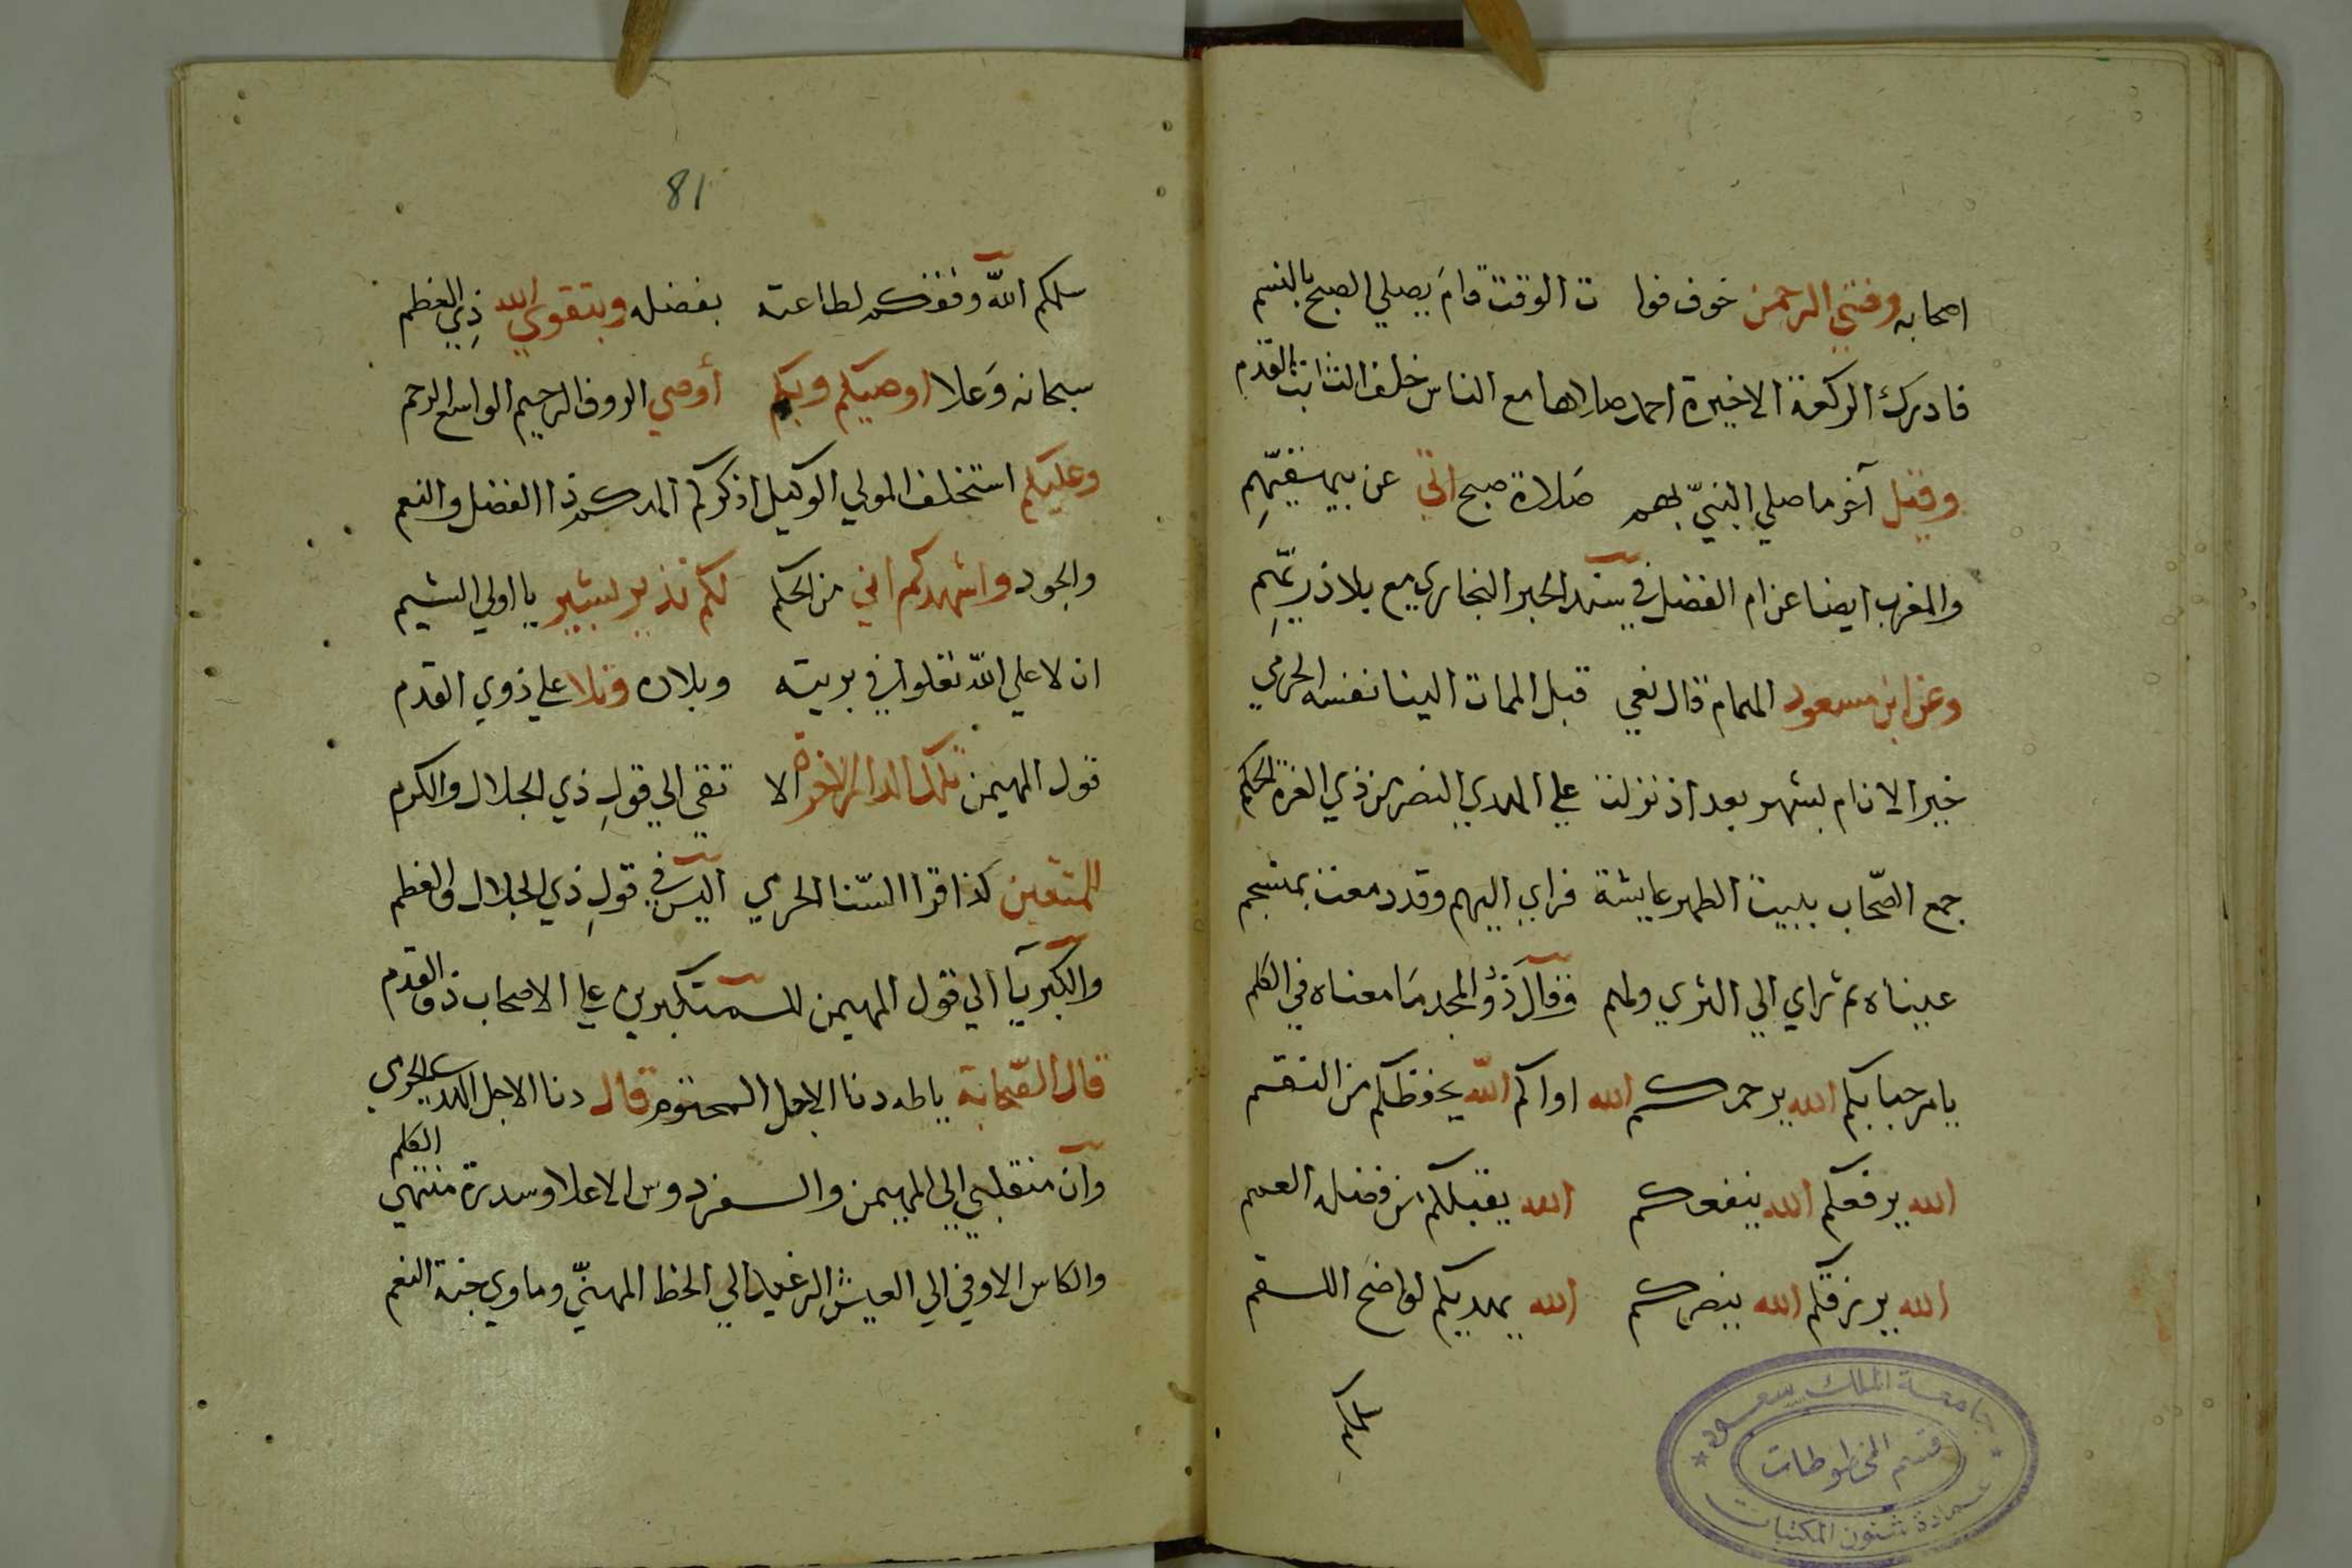 اصحابه وفتني الرحمن خوف فوا ت الوقت قام يصلي الصبح بالنسم
فادرك الركعة الاخيرة احمد صلاها مع الناس خلف الثابت القدم
وقيل آخر ما صلي النبيّ بهم صَلاة صبح اتي عن بيهقيّهمِ
والمغرب ايضا عن ام الفضل في سند الحبر البخاري مع بلاذريّهمِ
وعن ابن مسعود الهمام قال نعي قبل الممات الينا نفسه الحرمي
خير الانام بشهر بعد اذ نزلت علي الهدي النصر من ذي العزة الحكم
جمع الصّحاب ببيت الطهر عايشة فراي اليهم وقد دمعت بمنسجم
عيناه ثم راي الي الثري ولهم وقال ذو المجد مَا معناه في الكلم
يا مرحبا بكم الله يرحمكم الله اواكم الله يحفظكم من النقم
الله يرفعكم الله ينفعكم الله يقبلكم من فضله العمم
الله يرزقكم الله ينصركم الله يهديكم لواضح اللقم
سلمكم
جامعة الملك سعود
قسم المخطوطات
عمادة شئون المكتبات
81
سلمكم الله وفقكم لطاعته بفضله وبتقوي الله ذِي العظم
سبحانه وَعلا اوصيكم وبكم أوصي الروف الرحيم الواسع الرحم
وعليكم استخلف المولي الوكيل اذكركم المدكم ذا الفضل والنعم
والجود واشهدكم اني من الحكم لكم نذير بشير يا اولي الشيم
ان لا علي الله تعلوا في بريته وبلاده وتلا علي ذوي القدم
قول المهيمن تلك الدار الاخرة الا تقي الي قولِ ذي الجلال والكرم
للمتقين كذا قرا السّنا الحرمي اليس في قولِ ذي الجلال والعظم
والكبريآ الي قول المهيمن للمتكبرين علي الاصحاب ذو القدم
قال الصّحابة يا طه دنا الاجل المحتوم قال دنا الاجل الحرمي
وان منقلبي الي المهيمن والفردوس الاعلا وسدرة منتهي العلم
والكاس الاوفي الي العيش الرغيد الي الحظ المهنّي وماوي جنة النعم